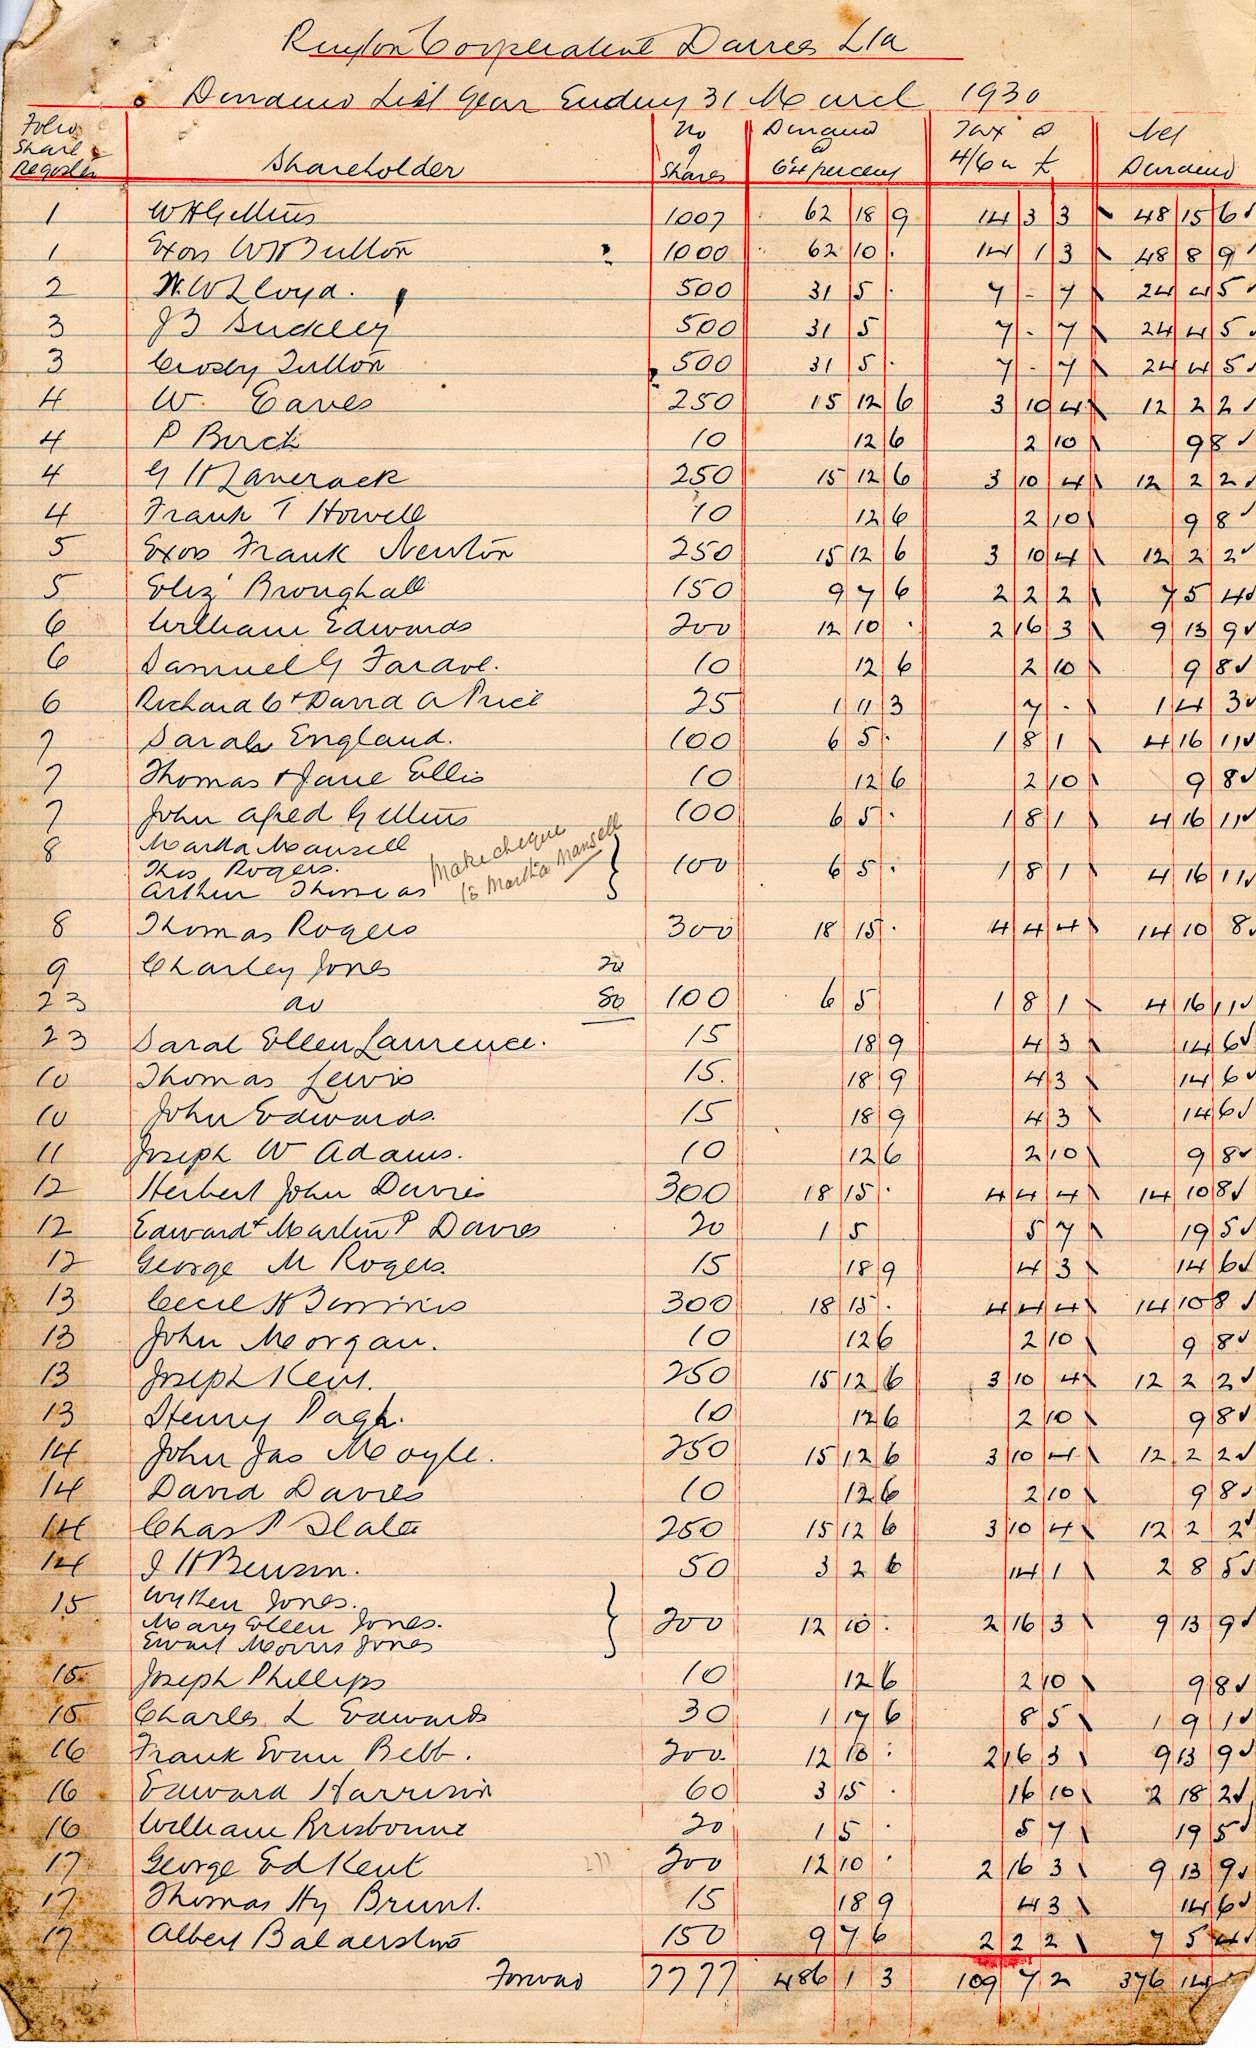 Ruyton Cooperative Dairies Ltd
Dividend List Year Ending 31 March 1930
Folio Share Register Shareholder No of Shares Dividend @ 6¼ percent Tax @ 4/6 in £ Net Dividend
1 W H Gittins 1007 62 18 9 14 3 3 48 15 6
1 Exors W H Sutton 1000 62 10 . 14 1 3 48 8 9
2 W. W Lloyd. 500 31 5 . 7 - 7 24 4 5
3 J B Buckley 500 31 5 7 - 7 24 4 5
3 Crosby Sutton 500 31 5 . 7 - 7 24 4 5
4 W. Eaves 250 15 12 6 3 10 4 12 2 2
4 P Birch 10 12 6 2 10 9 8
4 G H Laverack 250 15 12 6 3 10 4 12 2 2
4 Frank T Howell 10 12 6 2 10 9 8
5 Exors Frank Newton 250 15 12 6 3 10 4 12 2 2
5 Eliz' Broughall 150 9 7 6 2 2 2 7 5 4
6 William Edwards 200 12 10 . 2 16 3 9 13 9
6 Samuel G 10 12 6 2 10 9 8
6 Richard C + David A Price 25 1 11 3 7 . 1 4 3
7 Sarah England. 100 6 5 . 1 8 1 4 16 11
7 Thomas + Jane Ellis 10 12 6 2 10 9 8
7 John Alfred Gittins 100 6 5 . 1 8 1 4 16 11
8 Martha Mansell
Thos Rogers. Make cheque 100 6 5 . 1 8 1 4 16 11
Arthur Thomas to Martha Mansell
8 Thomas Rogers 300 18 15 . 4 4 4 14 10 8
9 Charley Jones 20
23 do 80 100 6 5 1 8 1 4 16 11
23 Sarah Ellen Lawrence. 15 18 9 4 3 14 6
10 Thomas Lewis 15. 18 9 4 3 14 6
10 John Edwards. 15 18 9 4 3 14 6
11 Joseph W Adams. 10 12 6 2 10 9 8
12 Herbert John Davies 300 18 15 . 4 4 4 14 10 8
12 Edward + Martin P Davies 20 1 5 5 7 19 5
12 George M Rogers. 15 18 9 4 3 14 6
13 Cecil H 300 18 15 . 4 4 4 14 10 8
13 John Morgan. 10 12 6 2 10 9 8
13 Joseph Kent. 250 15 12 6 3 10 4 12 2 2
13 Henry Pugh. 10 12 6 2 10 9 8
14 John Jas Moyle. 250 15 12 6 3 10 4 12 2 2
14 David Davies 10 12 6 2 10 9 8
14 Chas P Slater 250 15 12 6 3 10 4 12 2 2
14 J H Benson. 50 3 2 6 14 1 2 8 5
15 Wyken Jones.
Mary Ellen Jones. 200 12 10 . 2 16 3 9 13 9
Ewart Morris Jones
15 Joseph Phillips 10 12 6 2 10 9 8
15 Charles L Edwards 30 1 17 6 8 5 1 9 1
16 Frank Evan Bebb. 200 12 10 . 2 16 3 9 13 9
16 Edward Harrison 60 3 15 . 16 10 2 18 2
16 William Brisbourne 20 1 5 . 5 7 19 5
17 George Ed Kent 277 200 12 10 . 2 16 3 9 13 9
17 Thomas Hy Brunt. 15 18 9 4 3 14 6
17 Albert Balderston 150 9 7 6 2 2 2 7 5 4
Forward 7777 486 1 3 109 7 2 376 14